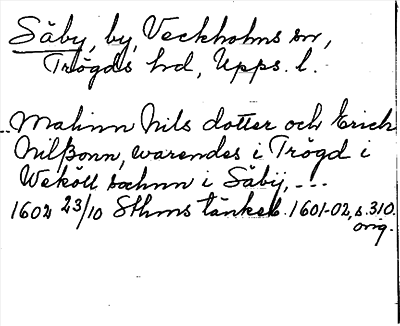 Säby, by, Veckholms sn,
Trögds hd, Upps. l.
..Malinn Nils dotter och Erich
Nilßonn, warendes i Trögd i
Weköll sochnn i Säbij, ---
1602 23/10 Sthms tänkeb. 1601-02, s. 310.
orig.